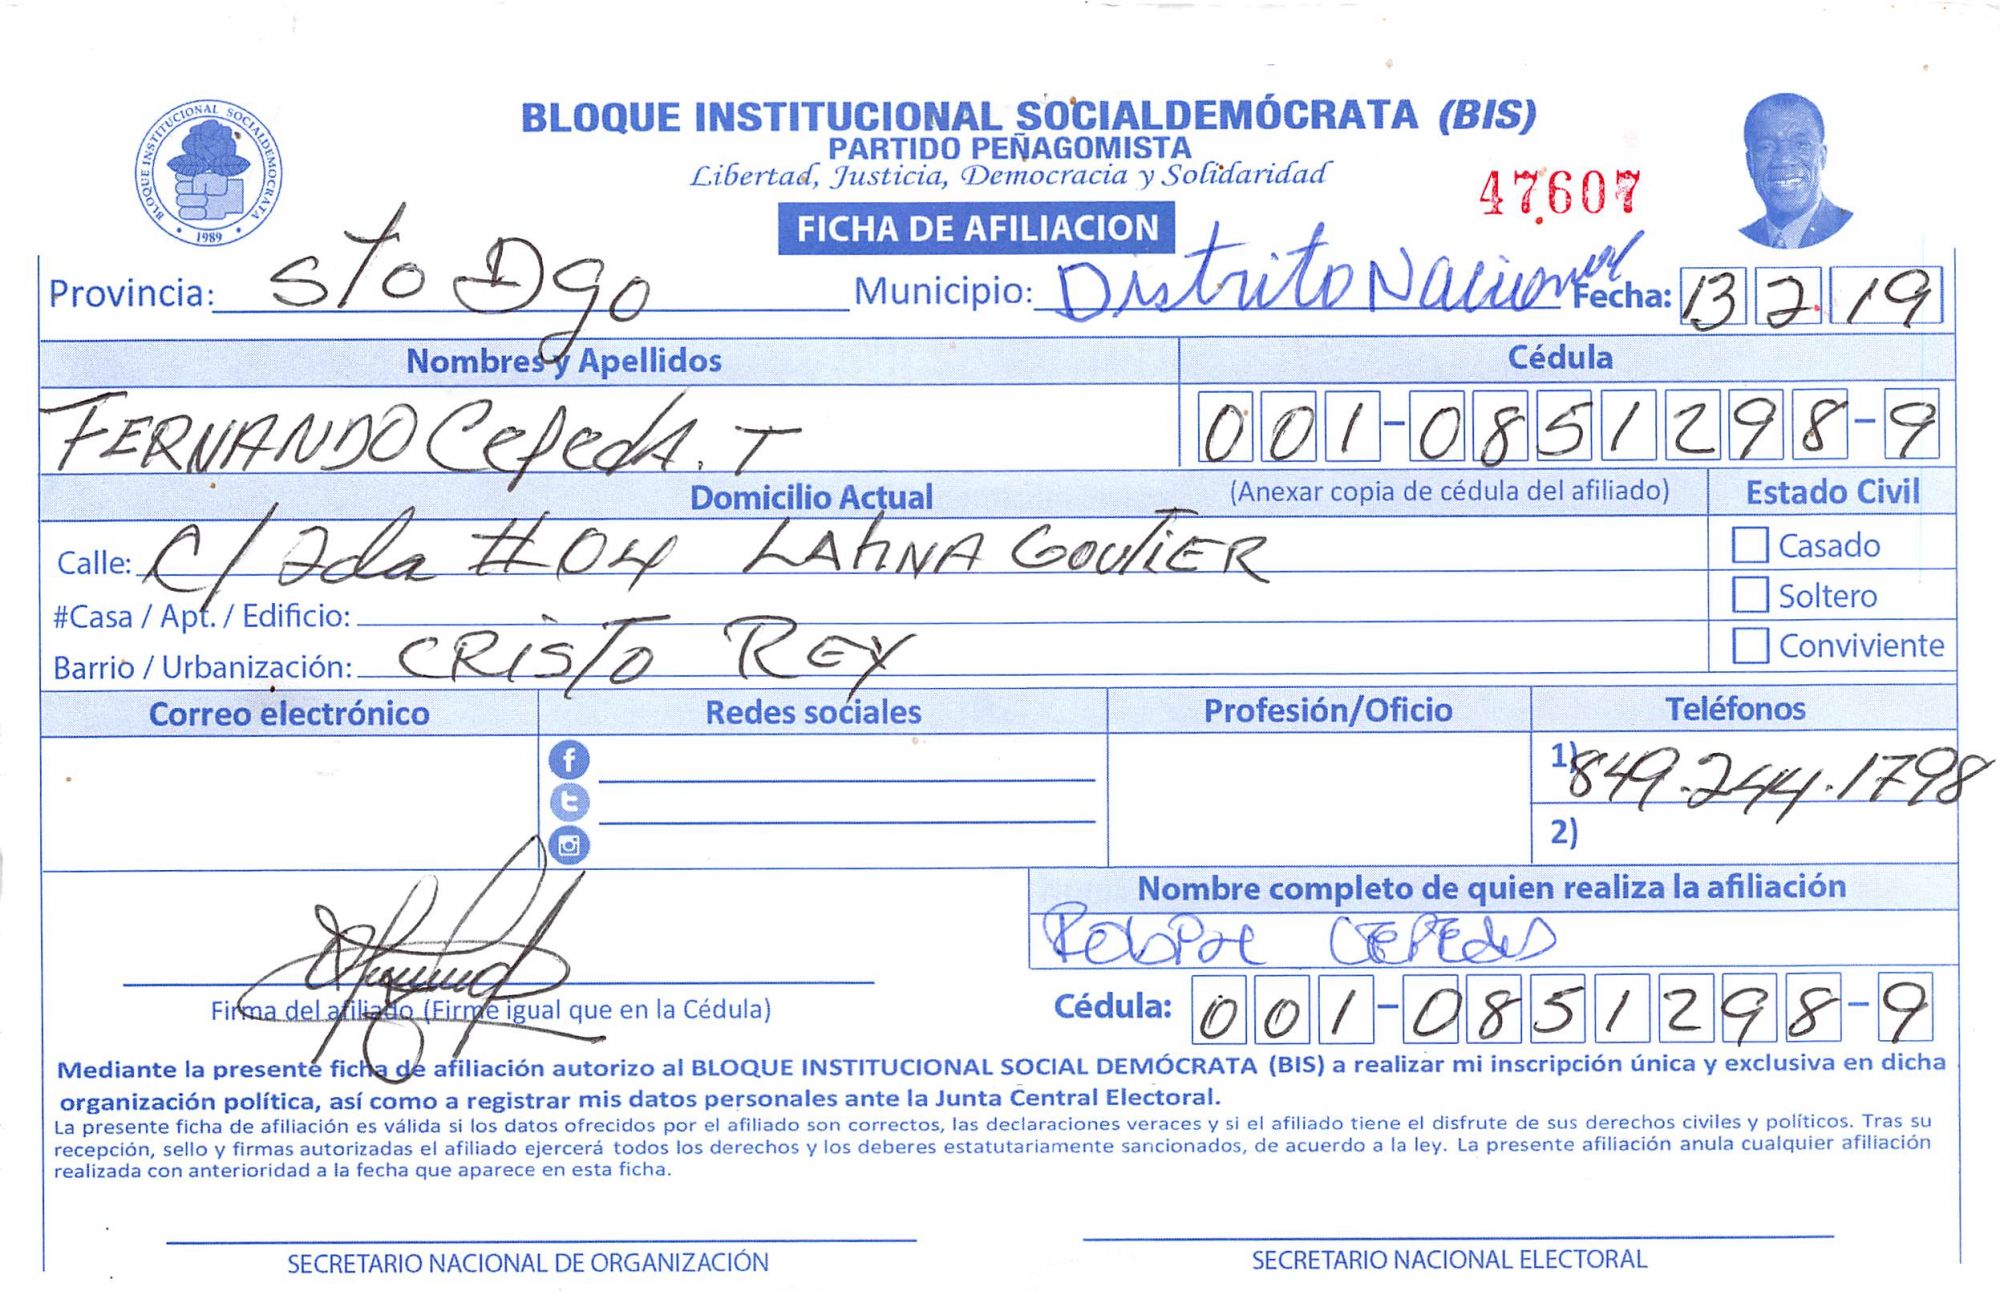 BLOQUE INSTITUCIONAL SOCIALDEMÓCRATA (BIS)
PARTIDO PEÑAGOMISTA
Libertad, Justicia, Democracia y Solidaridad
BLOQUE INSTITUCIONAL SOCIALDEMOCRATA
1989
47607
FICHA DE AFILIACION
Provincia: Sto Dgo Municipio: Distrito Nacional Fecha: 13 2 19
Nombres y Apellidos Cédula
FERNANDO Cepeda. T 001-0851298-9
Domicilio Actual (Anexar copia de cédula del afiliado) Estado Civil
Calle: C/ 2da #04 GOUTIER Casado
#Casa / Apt. / Edificio: Soltero
Barrio / Urbanización: CRISTO REY Conviviente
Correo electrónico Redes sociales Profesión/Oficio Teléfonos
1) 849.244.1798
2)
Nombre completo de quien realiza la afiliación
CEPEda
Firma del afiliado (Firme igual que en la Cédula) Cédula: 001-0851298-9
Mediante la presente ficha de afiliación autorizo al BLOQUE INSTITUCIONAL SOCIAL DEMÓCRATA (BIS) a realizar mi inscripción única y exclusiva en dicha
organización política, así como a registrar mis datos personales ante la Junta Central Electoral.
La presente ficha de afiliación es válida si los datos ofrecidos por el afiliado son correctos, las declaraciones veraces y si el afiliado tiene el disfrute de sus derechos civiles y políticos. Tras su
recepción, sello y firmas autorizadas el afiliado ejercerá todos los derechos y los deberes estatutariamente sancionados, de acuerdo a la ley. La presente afiliación anula cualquier afiliación
realizada con anterioridad a la fecha que aparece en esta ficha.
SECRETARIO NACIONAL DE ORGANIZACIÓN SECRETARIO NACIONAL ELECTORAL